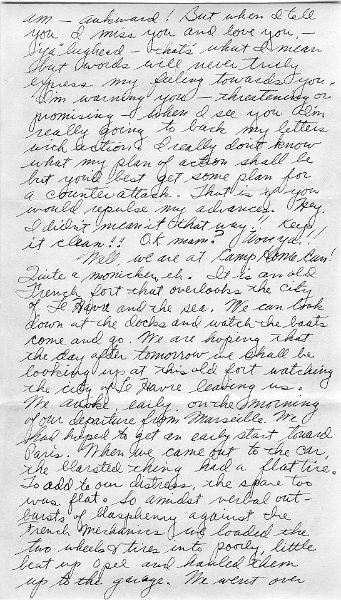 am - awkward! But when I tell
you I miss you and love you, -
lughead - that's what I mean
but words will never truly
express my feeling towards you.
I'm warning you - threatening or
promising - when I see you I'm
really going to back my letters
with action. I really don't know
what my plan of action shall be
but you'd best get some plan for
a counterattack. That is if you
would repulse my advances. Hey,
I didn't mean it that way - Keep
it clean!! O.K. mam? Won ya?
Well, we are at Camp Home Run!
Quite a monicker, eh. It is an old
French fort that overlooks the city
of Le Havre and the sea. We can look
down at the docks and watch the boats
come and go. We are hoping that
the day after tomorrow we shall be
looking up at this old fort watching
the city of Le Havre leaving us.
We awoke early on the morning
of our departure from Marseille. We
had hoped to get an early start toward
Paris. When we came out to the car,
the blarsted thing had a flat tire.
To add to our distress, the spare too
was flat. So amidst verbal out-
bursts of blasphemy against the
French mechanics we loaded the
two wheels & tires into poorly, little
beat up Opel and hauled them
up to the garage. We went over